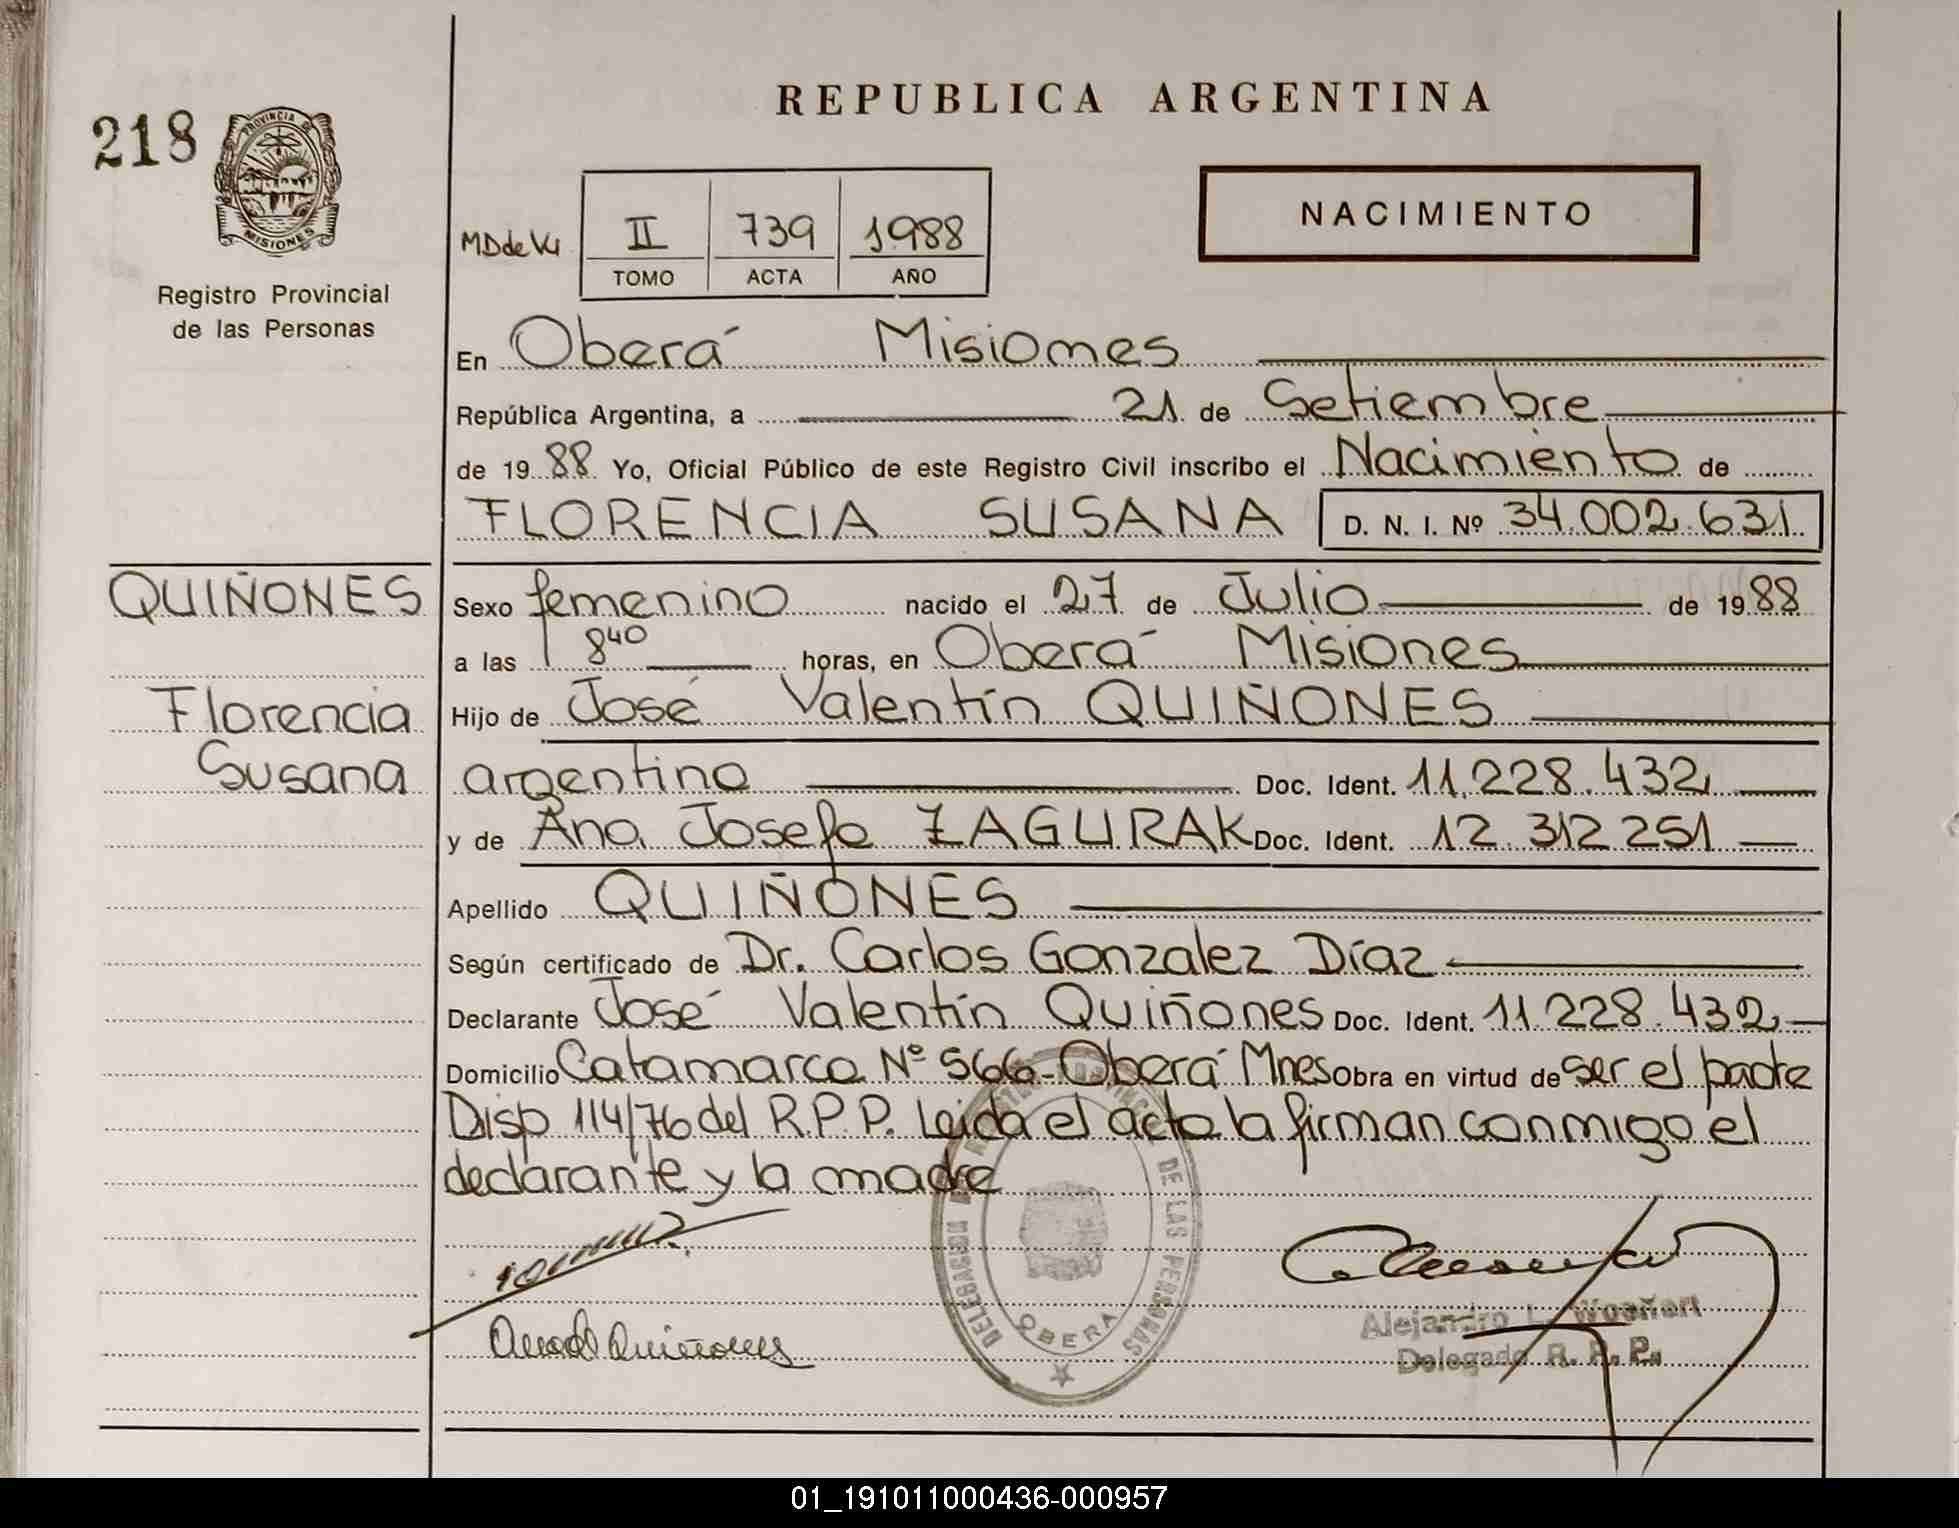 REPUBLICA ARGENTINA
218
PROVINCIA DE
MISIONES
Registro Provincial
de las Personas
NACIMIENTO
II 739 1988
TOMO ACTA AÑO
En Oberá Misiones
República Argentina, a 21 de Setiembre
de 1988 Yo, Oficial Público de este Registro Civil inscribo el Nacimiento de
FLORENCIA SUSANA D. N. I. Nº 34.002.631
QUIÑONES
Florencia
Susana
Sexo femenino nacido el 27 de Julio de 1988
a las 8 40 horas, en Oberá Misiones
Hijo de José Valentín QUIÑONES
argentino Doc. Ident. 11.228.432
y de Ana Josefa ZAGURAK Doc. Ident. 12.312.251
Apellido QUIÑONES
Según certificado de Dr. Carlos Gonzalez Díaz
Declarante José Valentín Quiñones Doc. Ident. 11.228.432
Domicilio Catamarca Nº 566-Oberá Mnes Obra en virtud de ser el padre
Disp 114/76 del R.P.P. Leida el acta la firman conmigo el
declarante y la madre
DELEGACION DE LAS PERSONAS
OBERA
Quiñones
Alejandro L.
Delegado R. P. P.
01_191011000436-000957